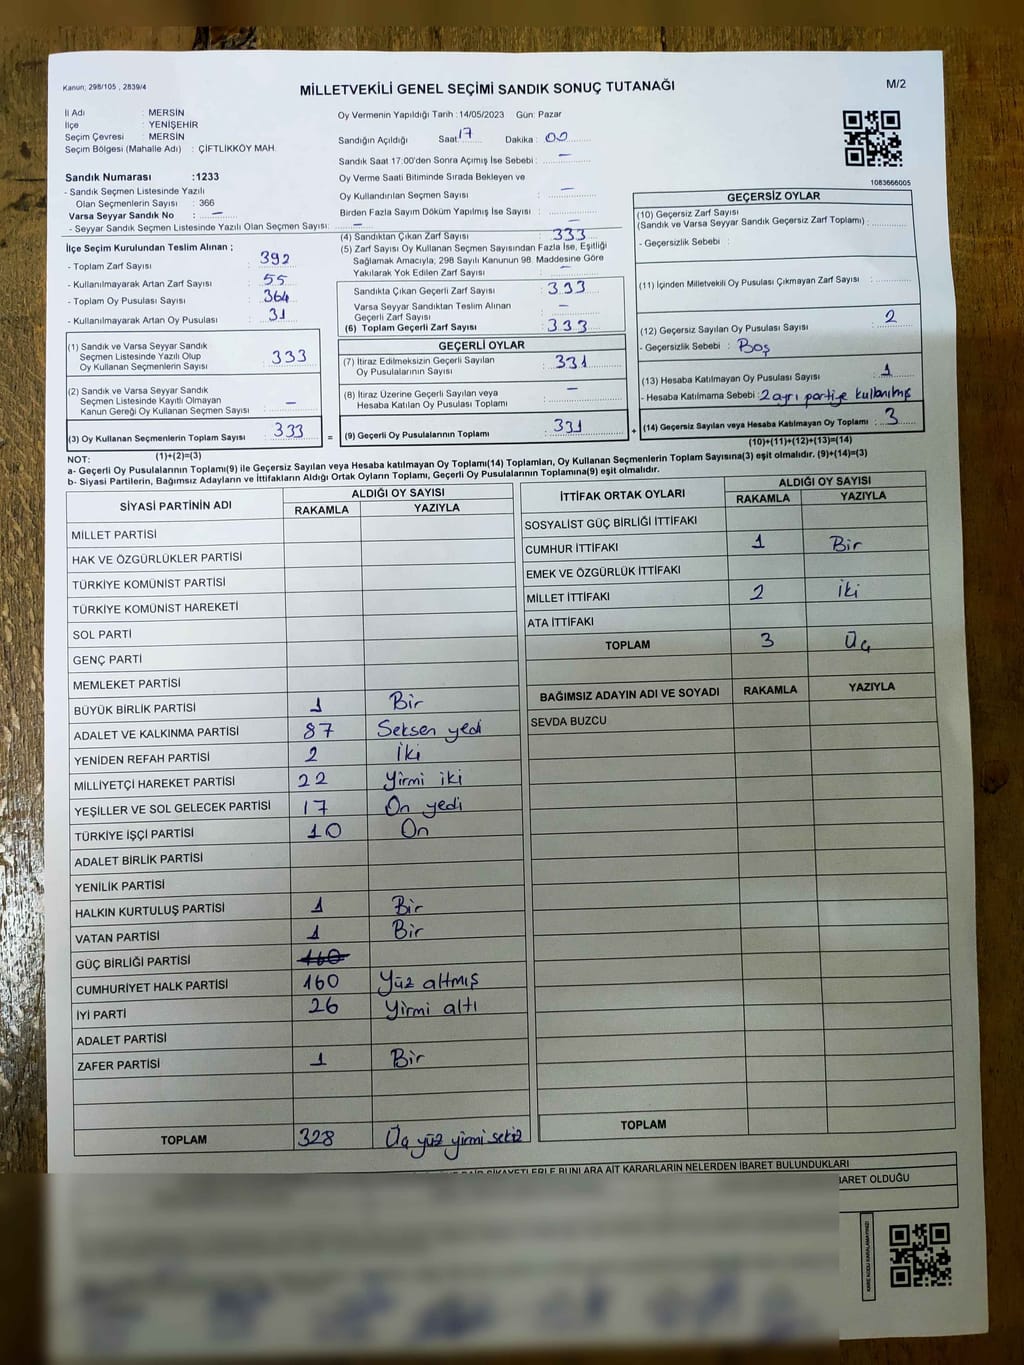 Kanun; 298/105 , 2839/4
MİLLETVEKİLİ GENEL SEÇİMİ SANDIK SONUÇ TUTANAĞI
M/2
İl Adı : MERSİN
İlçe : YENİŞEHİR
Seçim Çevresi : MERSİN
Seçim Bölgesi (Mahalle Adı) : ÇİFTLİKKÖY MAH.
Oy Vermenin Yapıldığı Tarih : 14/05/2023 Gün: Pazar
Sandığın Açıldığı Saat: 17 Dakika : 00
Sandık Saat 17:00'den Sonra Açımış İse Sebebi : —
Oy Verme Saati Bitiminde Sırada Bekleyen ve
Oy Kullandırılan Seçmen Sayısı : —
Birden Fazla Sayım Döküm Yapılmış İse Sayısı : —
1083666005
Sandık Numarası :1233
- Sandık Seçmen Listesinde Yazılı
Olan Seçmenlerin Sayısı : 366
Varsa Seyyar Sandık No : —
- Seyyar Sandık Seçmen Listesinde Yazılı Olan Seçmen Sayısı: —
İlçe Seçim Kurulundan Teslim Alınan ;
- Toplam Zarf Sayısı : 392
- Kullanılmayarak Artan Zarf Sayısı : 55
- Toplam Oy Pusulası Sayısı : 364
- Kullanılmayarak Artan Oy Pusulası : 31
(1) Sandık ve Varsa Seyyar Sandık
Seçmen Listesinde Yazılı Olup
Oy Kullanan Seçmenlerin Sayısı : 333
(2) Sandık ve Varsa Seyyar Sandık
Seçmen Listesinde Kayıtlı Olmayan
Kanun Gereği Oy Kullanan Seçmen Sayısı : —
(3) Oy Kullanan Seçmenlerin Toplam Sayısı : 333
(4) Sandıktan Çıkan Zarf Sayısı : 333
(5) Zarf Sayısı Oy Kullanan Seçmen Sayısından Fazla İse, Eşitliği
Sağlamak Amacıyla; 298 Sayılı Kanunun 98. Maddesine Göre
Yakılarak Yok Edilen Zarf Sayısı : —
Sandıkta Çıkan Geçerli Zarf Sayısı : 333
Varsa Seyyar Sandıktan Teslim Alınan
Geçerli Zarf Sayısı : —
(6) Toplam Geçerli Zarf Sayısı : 333
GEÇERLİ OYLAR
(7) İtiraz Edilmeksizin Geçerli Sayılan
Oy Pusulalarının Sayısı : 331
(8) İtiraz Üzerine Geçerli Sayılan veya
Hesaba Katılan Oy Pusulası Toplamı : —
= (9) Geçerli Oy Pusulalarının Toplamı : 331 +
GEÇERSİZ OYLAR
(10) Geçersiz Zarf Sayısı
(Sandık ve Varsa Seyyar Sandık Geçersiz Zarf Toplamı) :
- Geçersizlik Sebebi :
(11) İçinden Milletvekili Oy Pusulası Çıkmayan Zarf Sayısı :
(12) Geçersiz Sayılan Oy Pusulası Sayısı : 2
- Geçersizlik Sebebi : Boş
(13) Hesaba Katılmayan Oy Pusulası Sayısı : 1
- Hesaba Katılmama Sebebi : 2 ayrı partiye kullanılmış
(14) Geçersiz Sayılan veya Hesaba Katılmayan Oy Toplamı : 3
NOT: (1)+(2)=(3)
(10)+(11)+(12)+(13)=(14)
a- Geçerli Oy Pusulalarının Toplamı(9) ile Geçersiz Sayılan veya Hesaba katılmayan Oy Toplamı(14) Toplamları, Oy Kullanan Seçmenlerin Toplam Sayısına(3) eşit olmalıdır. (9)+(14)=(3)
b- Siyasi Partilerin, Bağımsız Adayların ve İttifakların Aldığı Ortak Oyların Toplamı, Geçerli Oy Pusulalarının Toplamına(9) eşit olmalıdır.
SİYASİ PARTİNİN ADI
ALDIĞI OY SAYISI
RAKAMLA YAZIYLA
MİLLET PARTİSİ
HAK VE ÖZGÜRLÜKLER PARTİSİ
TÜRKİYE KOMÜNİST PARTİSİ
TÜRKİYE KOMÜNİST HAREKETİ
SOL PARTİ
GENÇ PARTİ
MEMLEKET PARTİSİ
BÜYÜK BİRLİK PARTİSİ 1 Bir
ADALET VE KALKINMA PARTİSİ 87 Seksen yedi
YENİDEN REFAH PARTİSİ 2 İki
MİLLİYETÇİ HAREKET PARTİSİ 22 Yirmi iki
YEŞİLLER VE SOL GELECEK PARTİSİ 17 On yedi
TÜRKİYE İŞÇİ PARTİSİ 10 On
ADALET BİRLİK PARTİSİ
YENİLİK PARTİSİ
HALKIN KURTULUŞ PARTİSİ 1 Bir
VATAN PARTİSİ 1 Bir
GÜÇ BİRLİĞİ PARTİSİ 160
CUMHURİYET HALK PARTİSİ 160 Yüz altmış
İYİ PARTİ 26 Yirmi altı
ADALET PARTİSİ
ZAFER PARTİSİ 1 Bir
TOPLAM 328 Üç yüz yirmi sekiz
İTTİFAK ORTAK OYLARI
ALDIĞI OY SAYISI
RAKAMLA YAZIYLA
SOSYALİST GÜÇ BİRLİĞİ İTTİFAKI
CUMHUR İTTİFAKI 1 Bir
EMEK VE ÖZGÜRLÜK İTTİFAKI
MİLLET İTTİFAKI 2 İki
ATA İTTİFAKI
TOPLAM 3 Üç
BAĞIMSIZ ADAYIN ADI VE SOYADI RAKAMLA YAZIYLA
SEVDA BUZCU
TOPLAM
ŞİKAYETLERLE BUNLARA AİT KARARLARIN NELERDEN İBARET BULUNDUKLARI
OLDUĞU